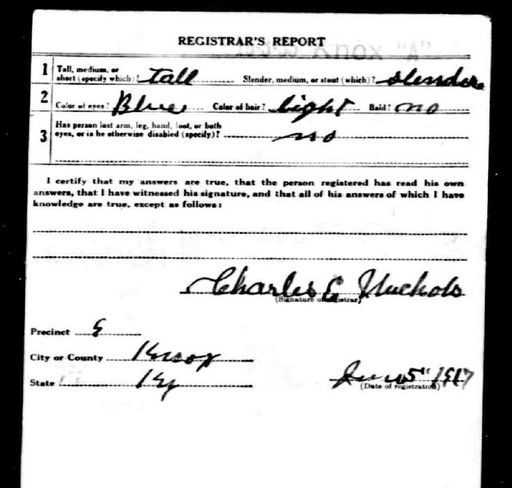 Knox "A"
REGISTRAR'S REPORT
1 Tall, medium, or short (specify which)? tall Slender, medium, or stout (which)? slender
2 Color of eyes? Blue Color of hair? light Bald? no
3 Has person lost arm, leg, hand, foot, or both eyes, or is he otherwise disabled (specify)? no
I certify that my answers are true, that the person registered has read his own
answers, that I have witnessed his signature, and that all of his answers of which I have
knowledge are true, except as follows:
Charles E Nuchols
(Signature of registrar)
Precinct
City or County Knox
State Ky
June 5" 1917
(Date of registration)